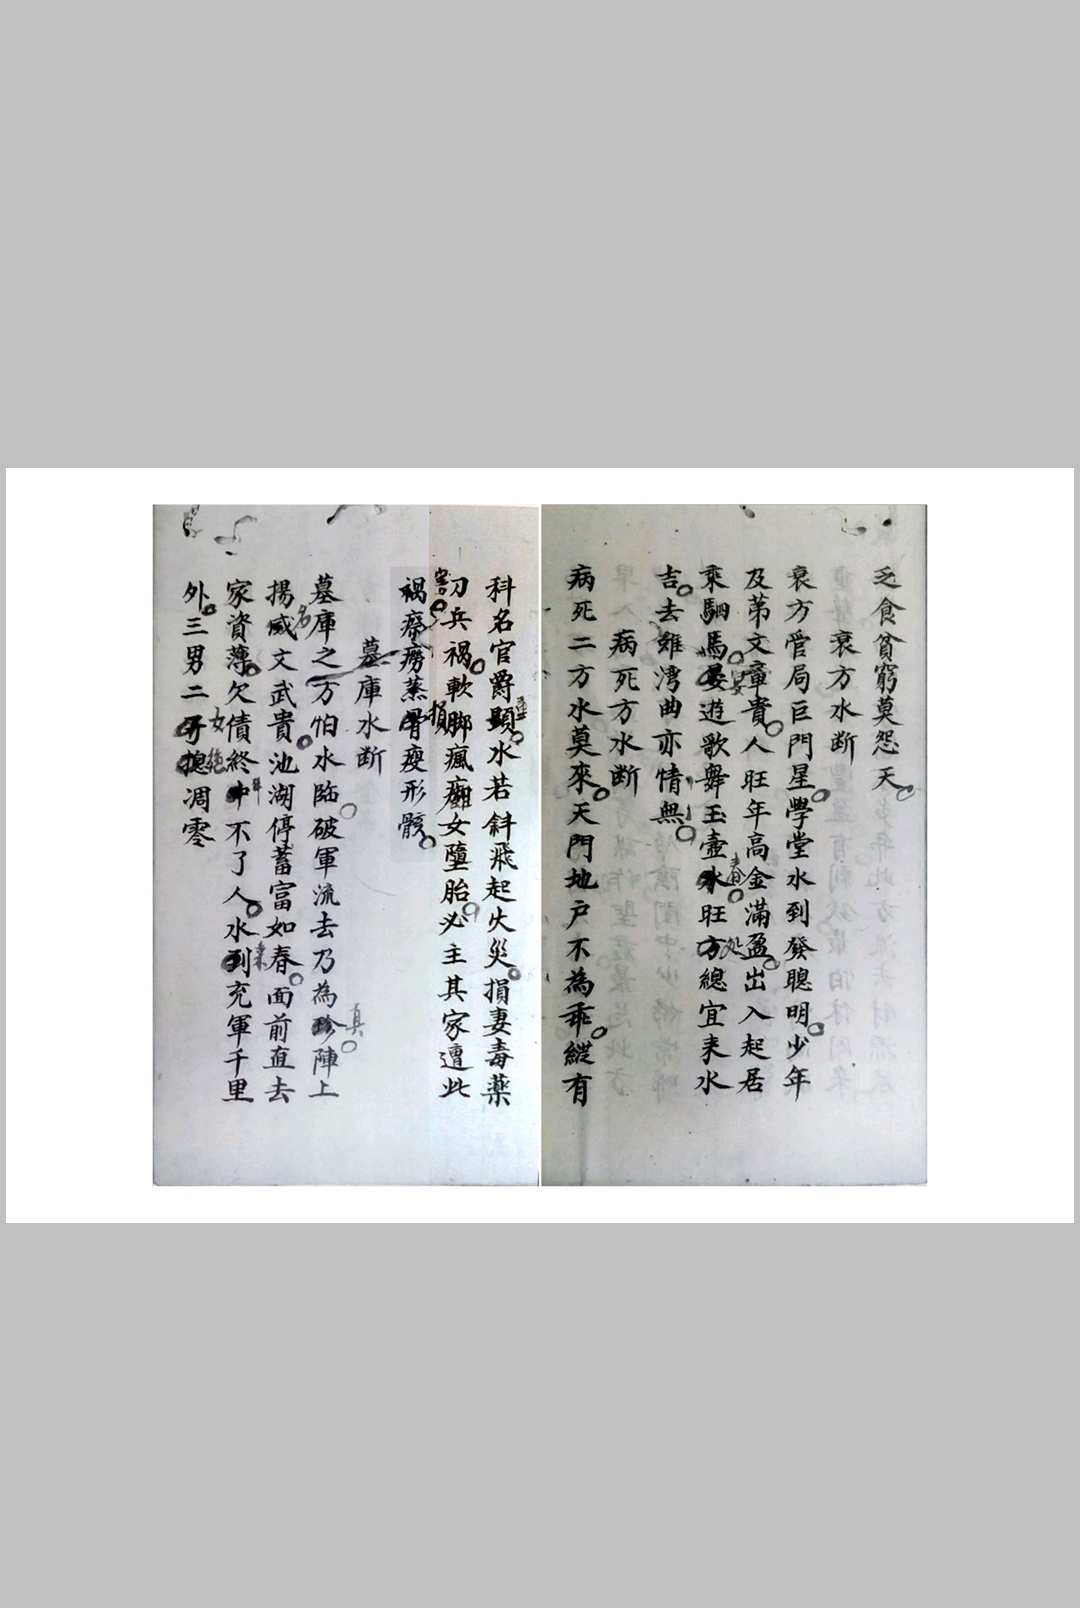 乏食貧窮莫怨天
衰方水断
衰方管局巨門星學堂水到發聰明少年
及苐文章貴人旺年高金滿盈出入起居
乘駟馬晏遊歌舞玉壷旺方總宜来水
宴
春
処
吉去雖湾曲亦情無
病死方水断
病死二方水莫來天門地户不為乖縱有
科名官爵顯水若斜飛起火災損妻毒薬
刃兵禍軟脚瘋癱女墮胎必主其家遭此
害
損
禍瘵癆蒸骨瘦形骸
墓庫水断
墓庫之方怕水臨破軍流去乃為珍陣上
真
揚威文武貴池湖停蓄富如春面前直去
名
家資薄欠債終中不了人水到充軍千里
來
外三男二子摠凋零
女
絶